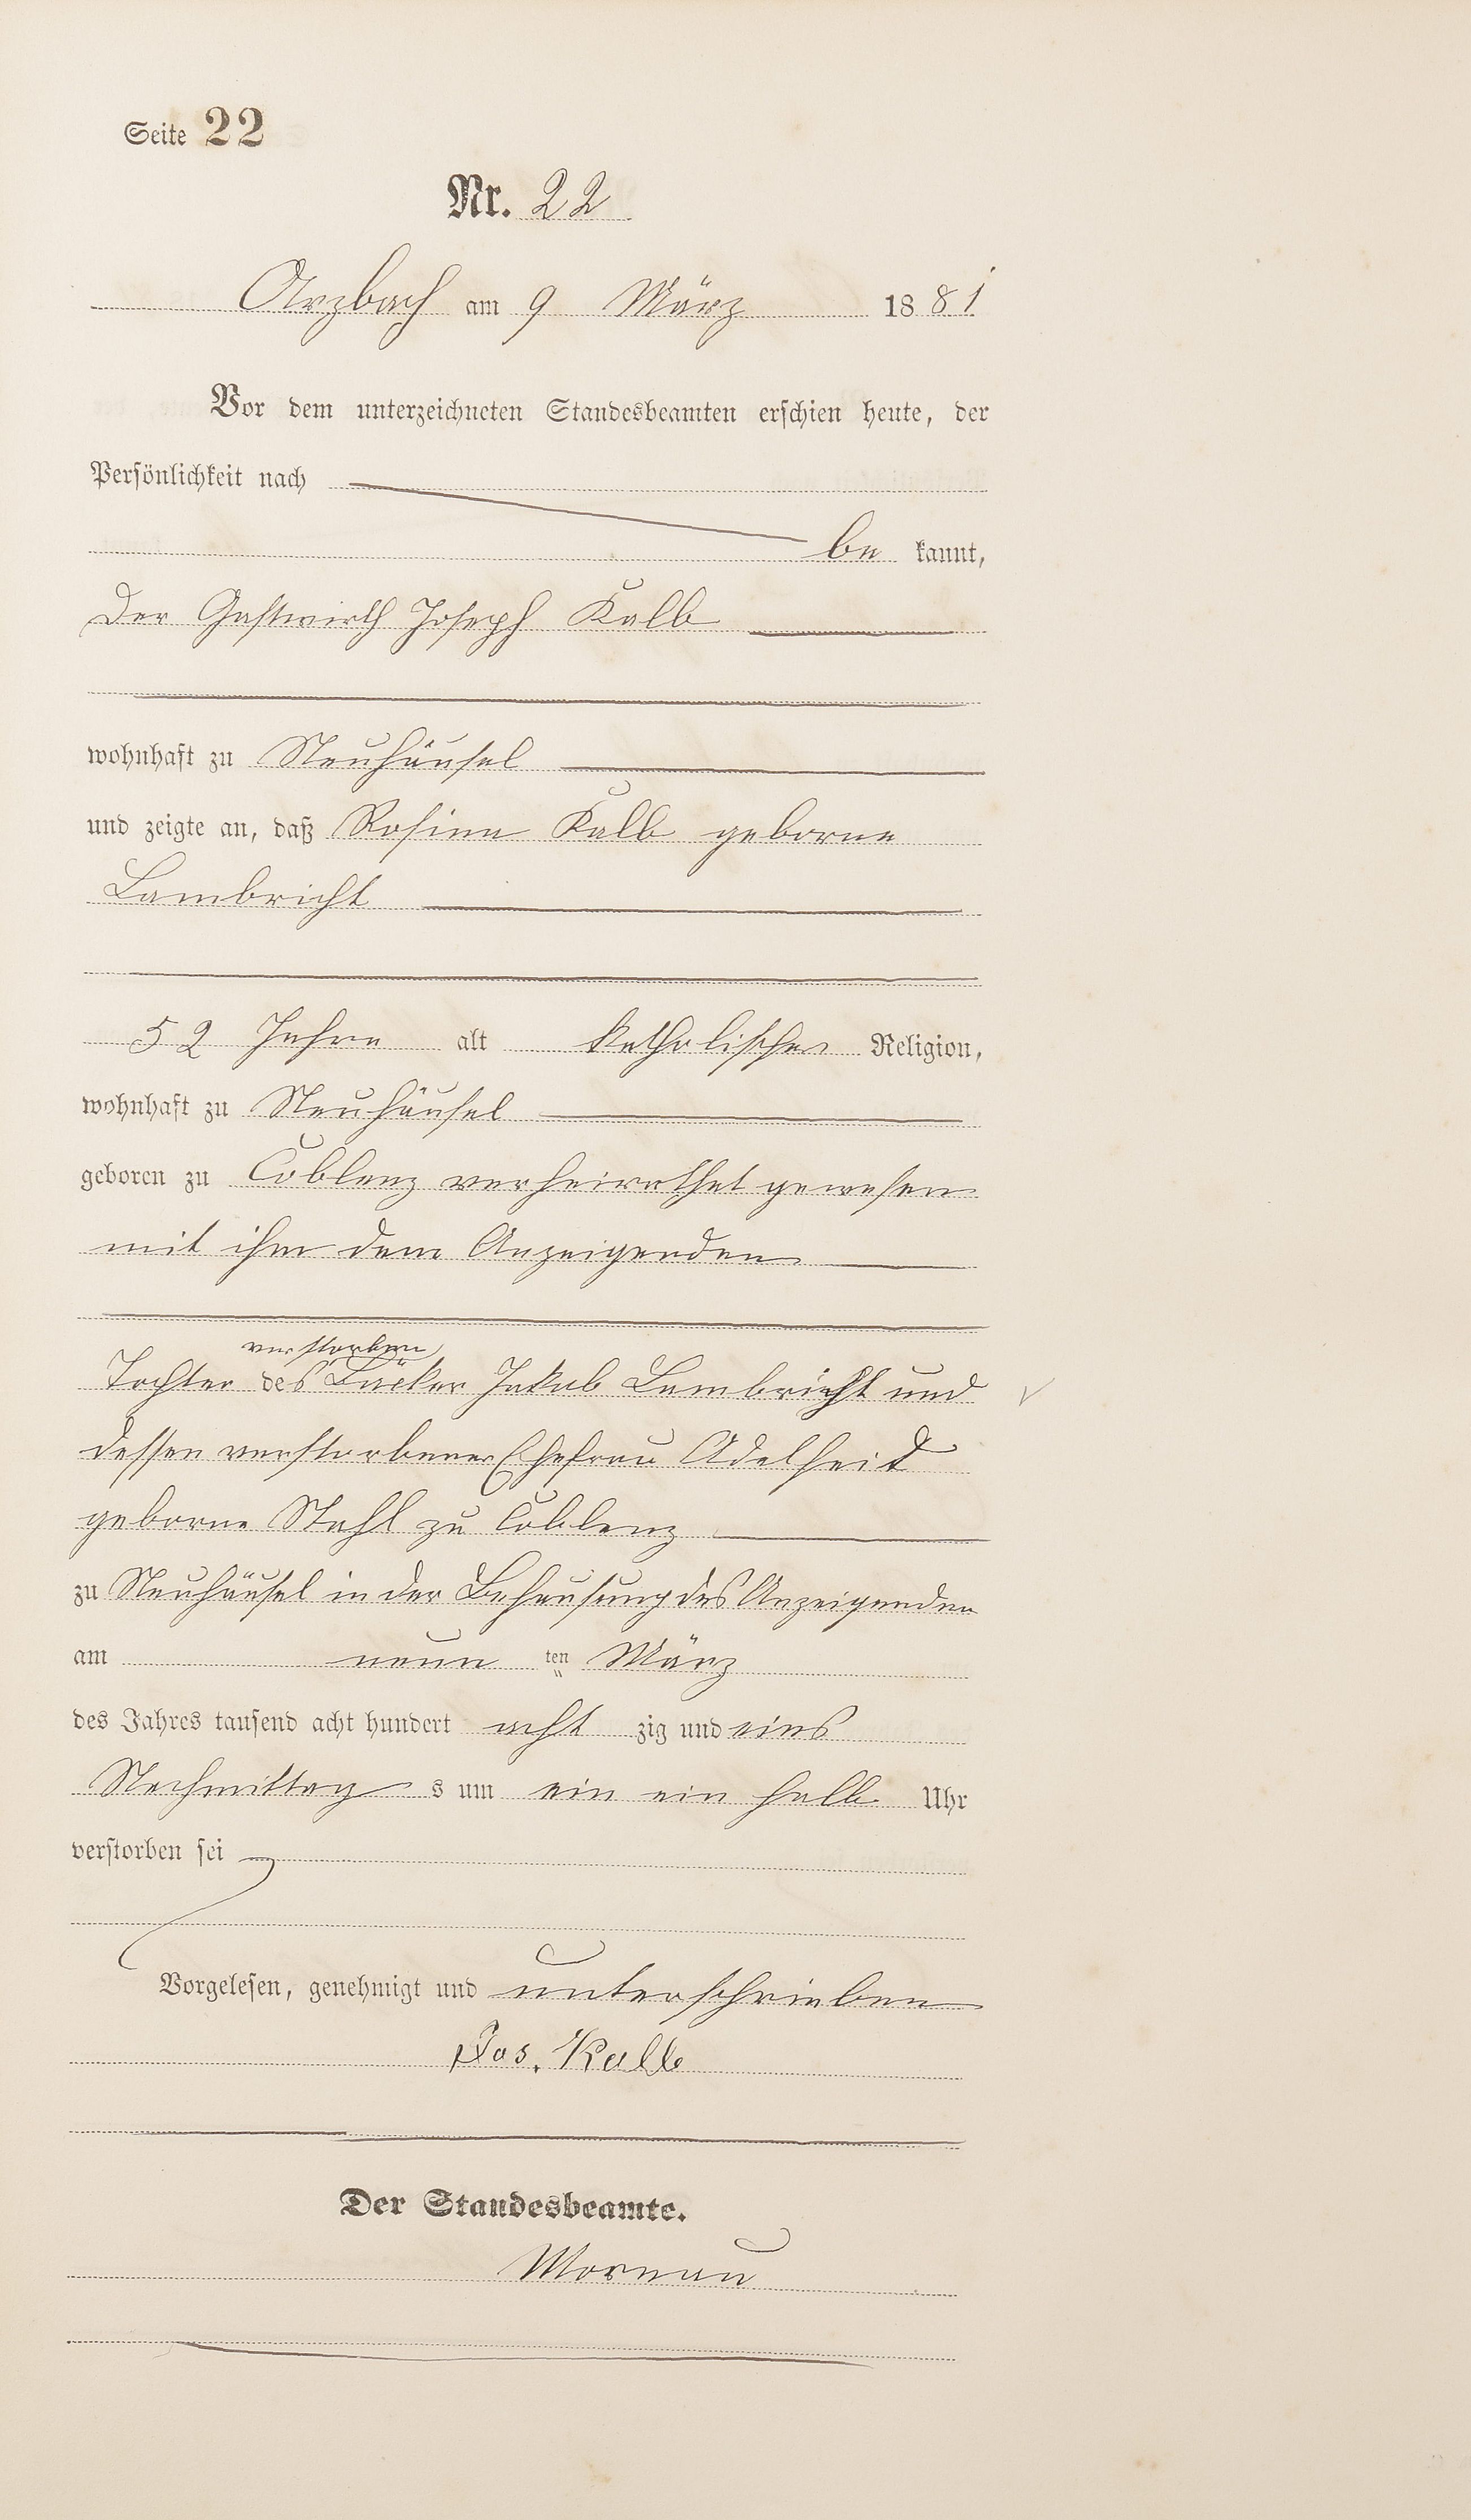 Seite 22
Nr. 22
Arzbach am 9 März 1881
Vor dem unterzeichneten Standesbeamten erschien heute, der
Persönlichkeit nach
be kannt,
der Gastwirth Joseph Kalb
wohnhaft zu Neuhäusel
und zeigte an, daß Rosina Kalb geborne
Lambricht
52 Jahre alt katholischer Religion,
wohnhaft zu Neuhäusel
geboren zu Coblenz verheirathet gewesen
mit ihm dem Anzeigenden
verstorbenen
Tochter des Bäcker Jakob Lambricht und
dessen verstorbener Ehefrau Adelheid
geborne Stahl zu Coblenz
zu Neuhäusel in der Behausung des Anzeigenden
am neun ten März
des Jahres tausend acht hundert acht zig und eins
Nachmittag s um ein ein halb Uhr
verstorben sei
Vorgelesen, genehmigt und unterschrieben
Jos. Kalb
Der Standesbeamte.